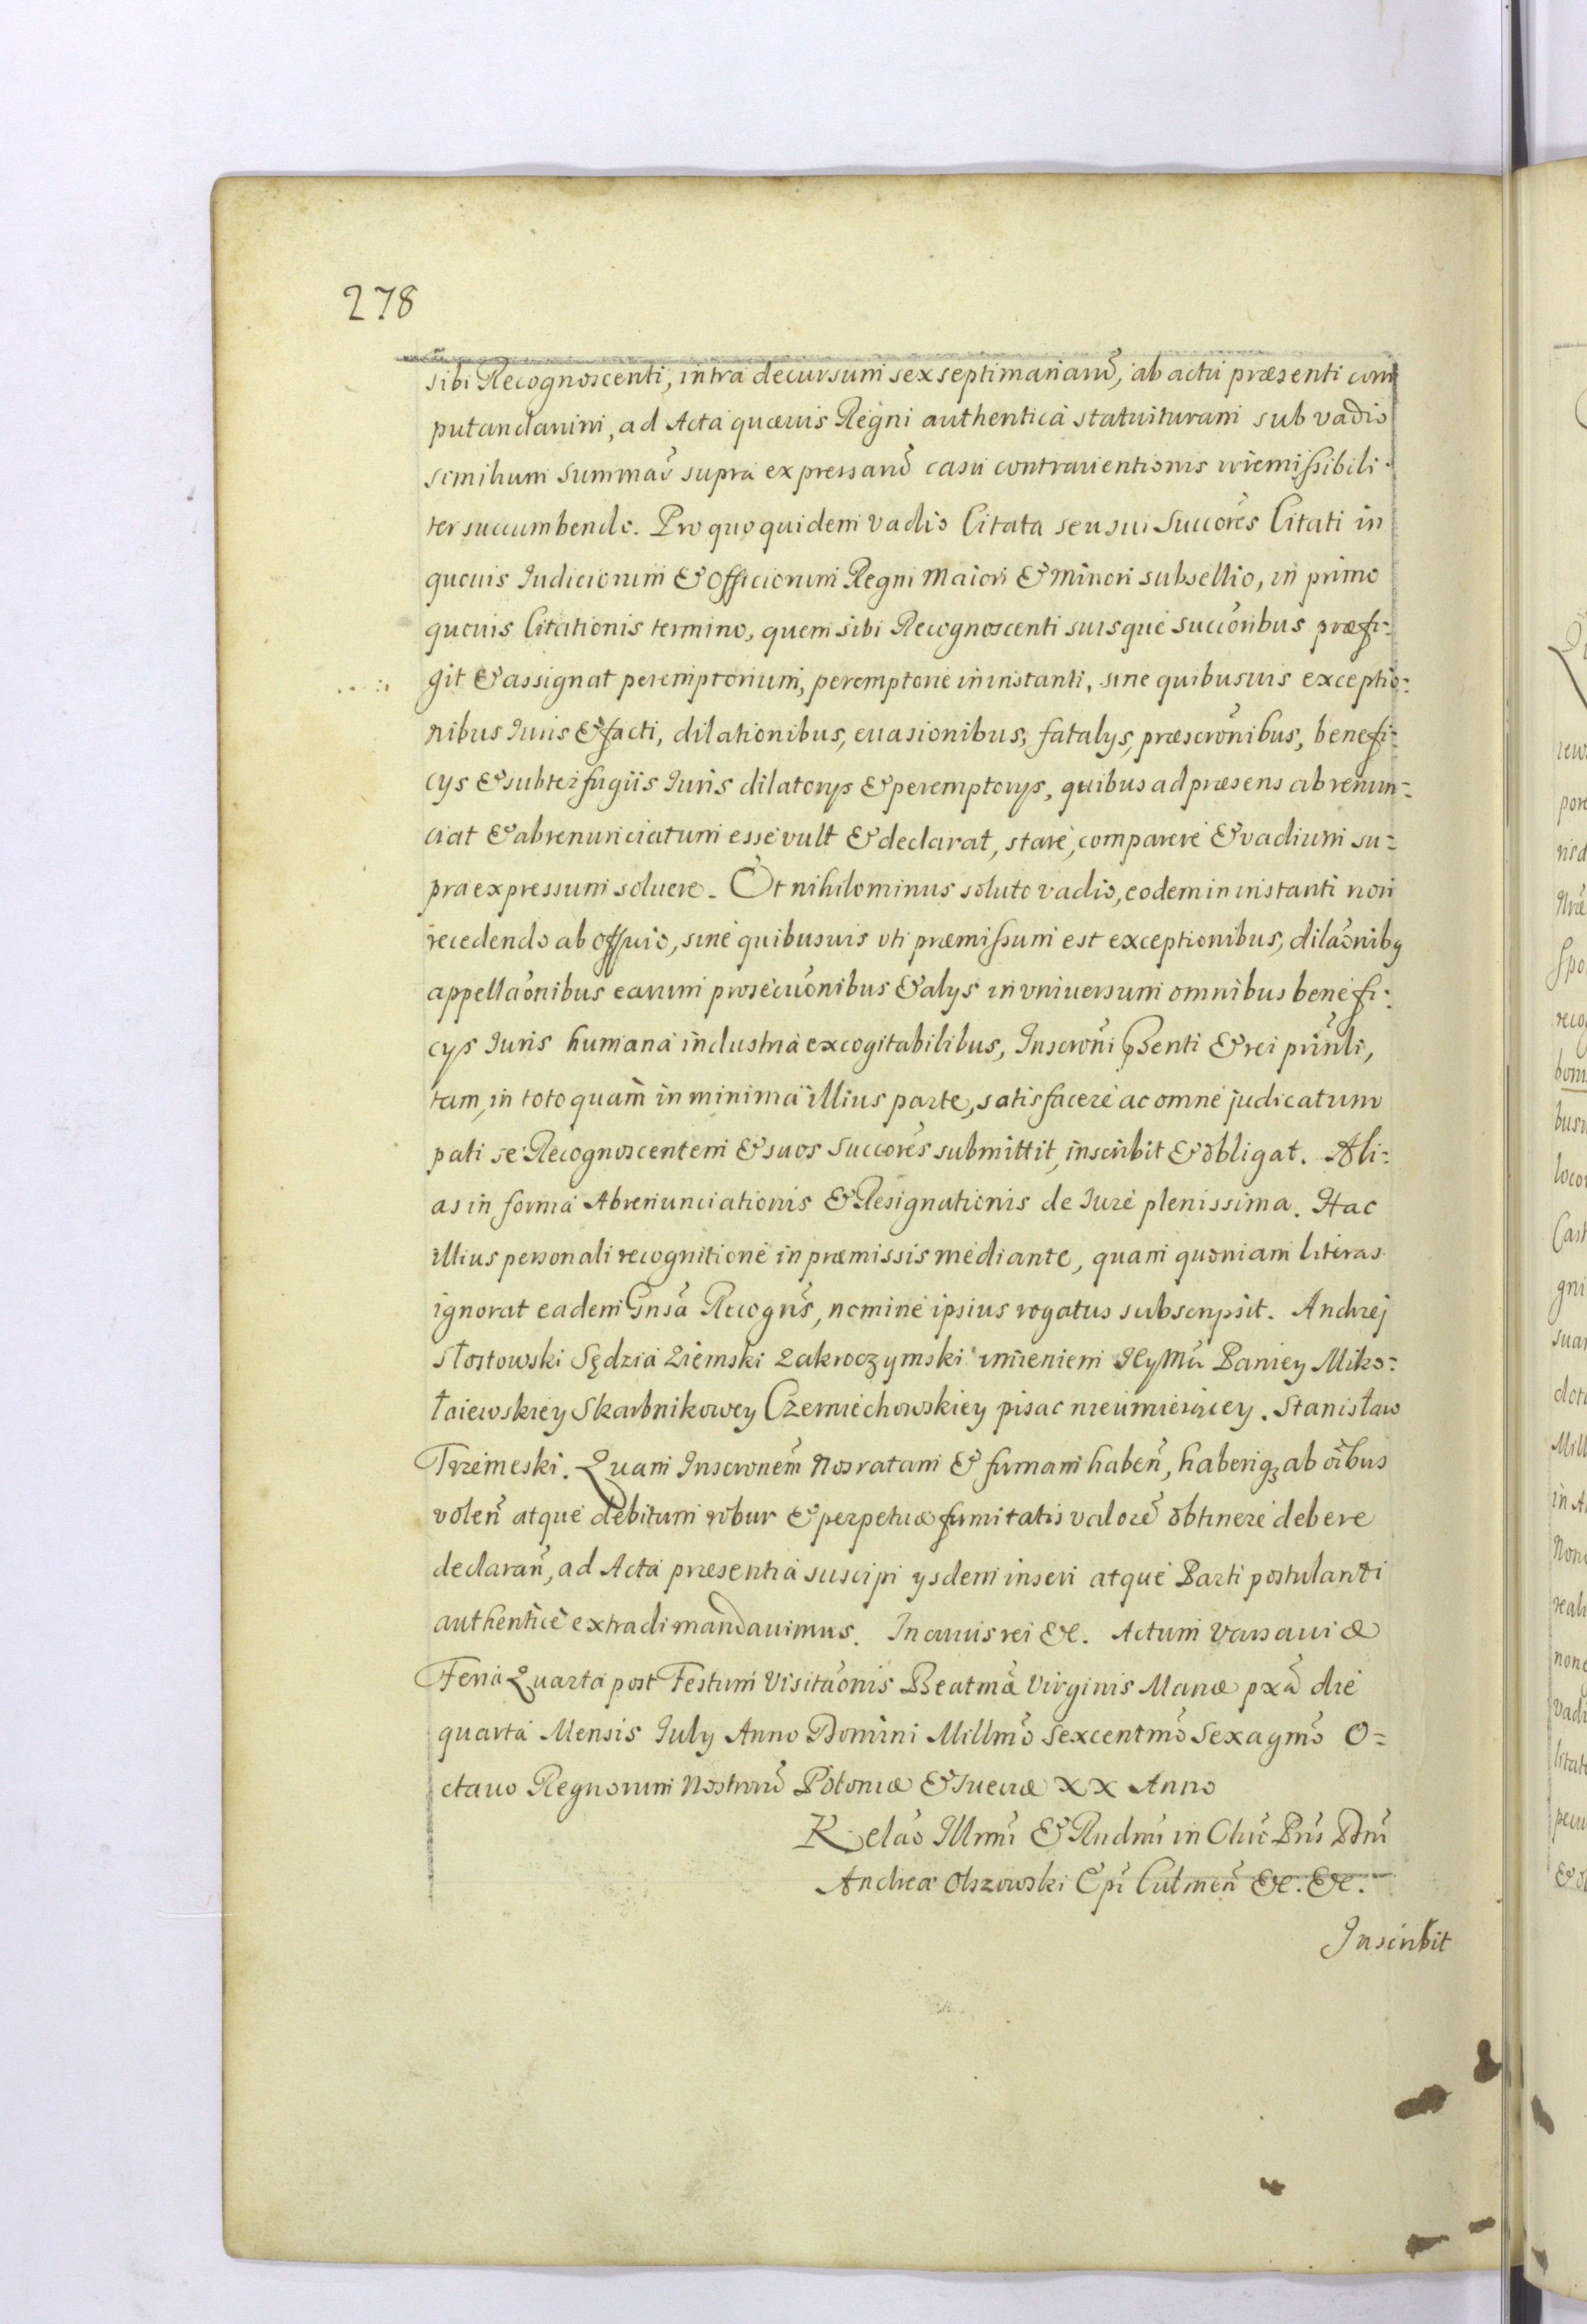 278
sibi Recognoscenti, intra decursum sex septimanarũ, ab actu præsenti com
putandarum, ad Acta quævis Regni authentica statuituram sub vadio
similium summaũ supra expressarũ casu contrauentionis irremissibili
ter succumbendo. Pro quo quidem vadio Citata seu sui Succores Citati in
quouis Iudiciorum & Officiorum Regni Maiori & Minori subsellio, in primo
quouis Citationis termino, quem sibi Recognoscenti suisque succoribus præfi:
git & assignat peremptorium, peremptorie in instanti, sine quibusuis exceptio:
nibus Iuris & facti, dilationibus, euasionibus, fatalys, præscrõnibus, benefi:
cys & subterfugiis Iuris dilatorys & peremptorys, quibus ad præsens abrenun:
ciat & abrenunciatum esse vult & declarat, stare, comparere & vadium su:
pra expressum soluere. Et nihilominus soluto vadio, eodem in instanti non
recedendo ab officio, sine quibusuis uti præmissum est exceptionibus, dilaõnibq
appellaõnibus earum prosecuõnibus & alys in uniuersum omnibus benefi:
cys Iuris humana industria excogitabilibus, Inscrõni pñsenti & rei prinli,
tam in toto quam in minima illius parte, satisfacere ac omne judicatum
pati se Recognoscentem & suos Succores submittit, inscribit & obligat. Ali:
as in forma Abrenunciationis & Resignationis de Iure plenissima. Hac
illius personali recognitione in præmissis mediante, quam quoniam literas
ignorat eadem Gnsa Recogns, nomine ipsius rogatus subscripsit. Andrzej
Słostowski Sędzia Ziemski Zakroczymski imieniem JeyMci Paniey Miko:
łaiewskiey Skarbnikowey Czerniechowskiey pisac nieumieiącey. Stanisław
Trzemeski. Quam Inscronem Nos ratam & firmam haben̄, haberiq3 ab oĩbus
volen̄ atque debitum robur & perpetuæ firmitatis valorẽ obtinere debere
declaran̄, ad Acta præsentia suscipi ysdem inseri atque Parti postulanti
authentice extradi mandauimus. In cuius rei &c. Actum Varsauiæ
Feria Quarta post Festum Visitaõnis Beatmæ Virginis Mariæ pxã die
quarta Mensis July Anno Domini Millmõ Sexcentmõ Sexagmõ O=
ctauo Regnorum Nostrorũ Poloniæ & Sueciæ XX Anno
Relaõ Illrmi & Rndmi in Chrõ Pris Dni
Andreæ Olszowski Epi Culmen̄ &c. &c.
Inscribit